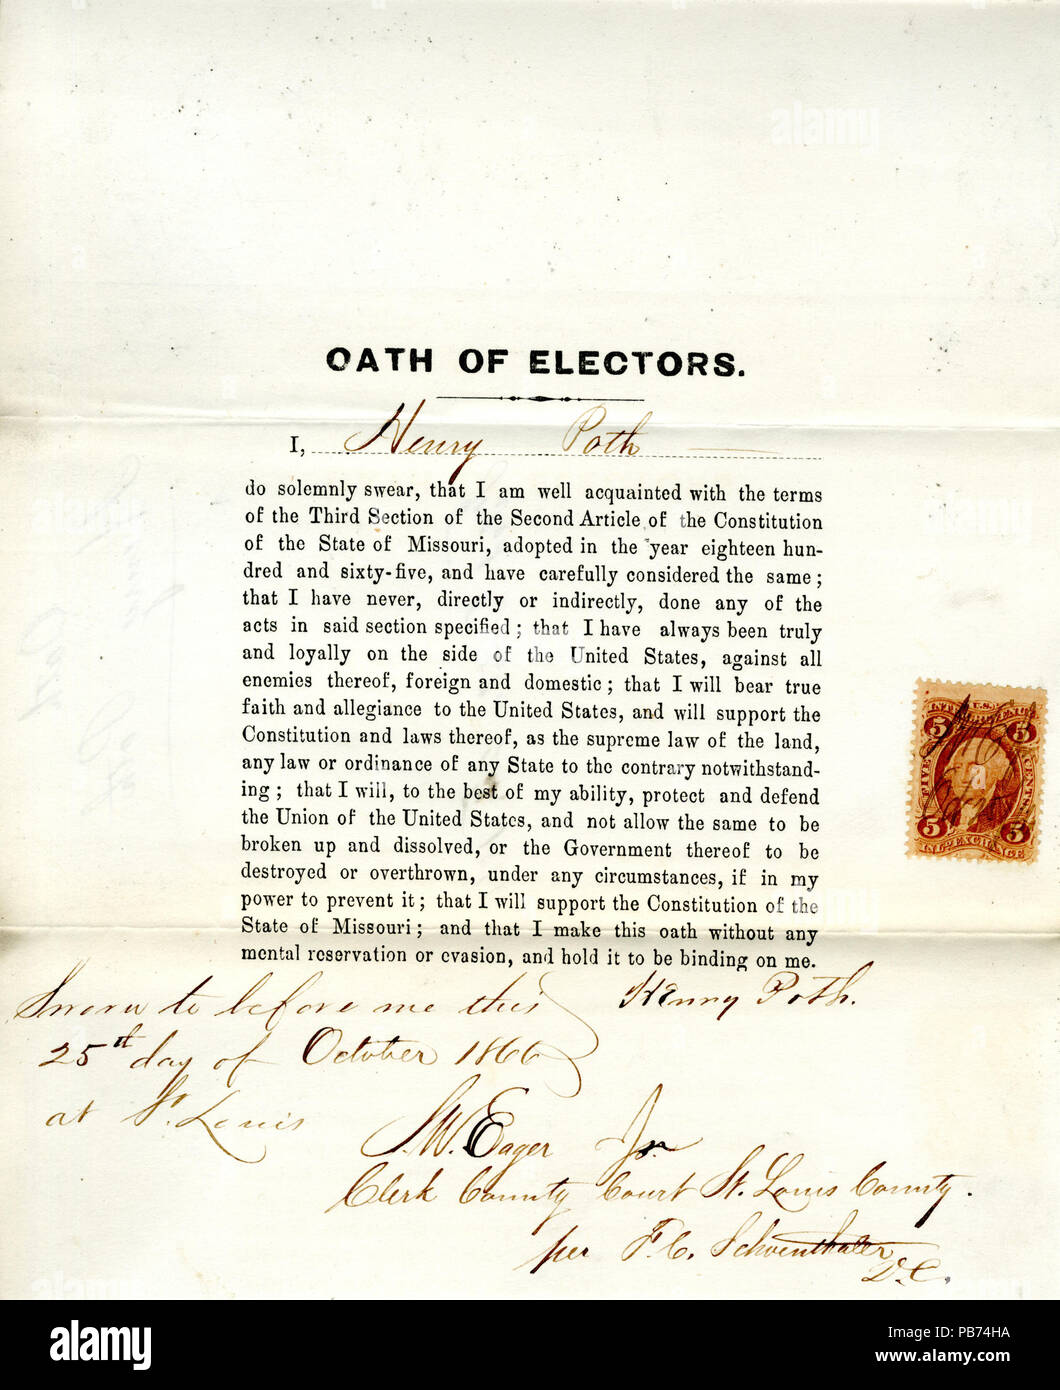 OATH OF ELECTORS.
I, Henry Poth
do solemnly swear, that I am well acquainted with the terms
of the Third Section of the Second Article of the Constitution
of the State of Missouri, adopted in the year eighteen hun-
dred and sixty-five, and have carefully considered the same;
that I have never, directly or indirectly, done any of the
acts in said section specified; that I have always been truly
and loyally on the side of the United States, against all
enemies thereof, foreign and domestic; that I will bear true
faith and allegiance to the United States, and will support the
Constitution and laws thereof, as the supreme law of the land,
any law or ordinance of any State to the contrary notwithstand-
ing; that I will, to the best of my ability, protect and defend
the Union of the United States, and not allow the same to be
broken up and dissolved, or the Government thereof to be
destroyed or overthrown, under any circumstances, if in my
power to prevent it; that I will support the Constitution of the
State of Missouri; and that I make this oath without any
mental reservation or evasion, and hold it to be binding on me.
Henry Poth.
Sworn to before me this
25th day of October 1866
at St. Louis
S.W. Eager Jr.
Clerk County Court St. Louis County.
per F.C. Schoenthaler
D.C.
5 5
FIVE CENTS
5 5
EXCHANGE
alamy
alamy
Image ID: PB74HA
www.alamy.com